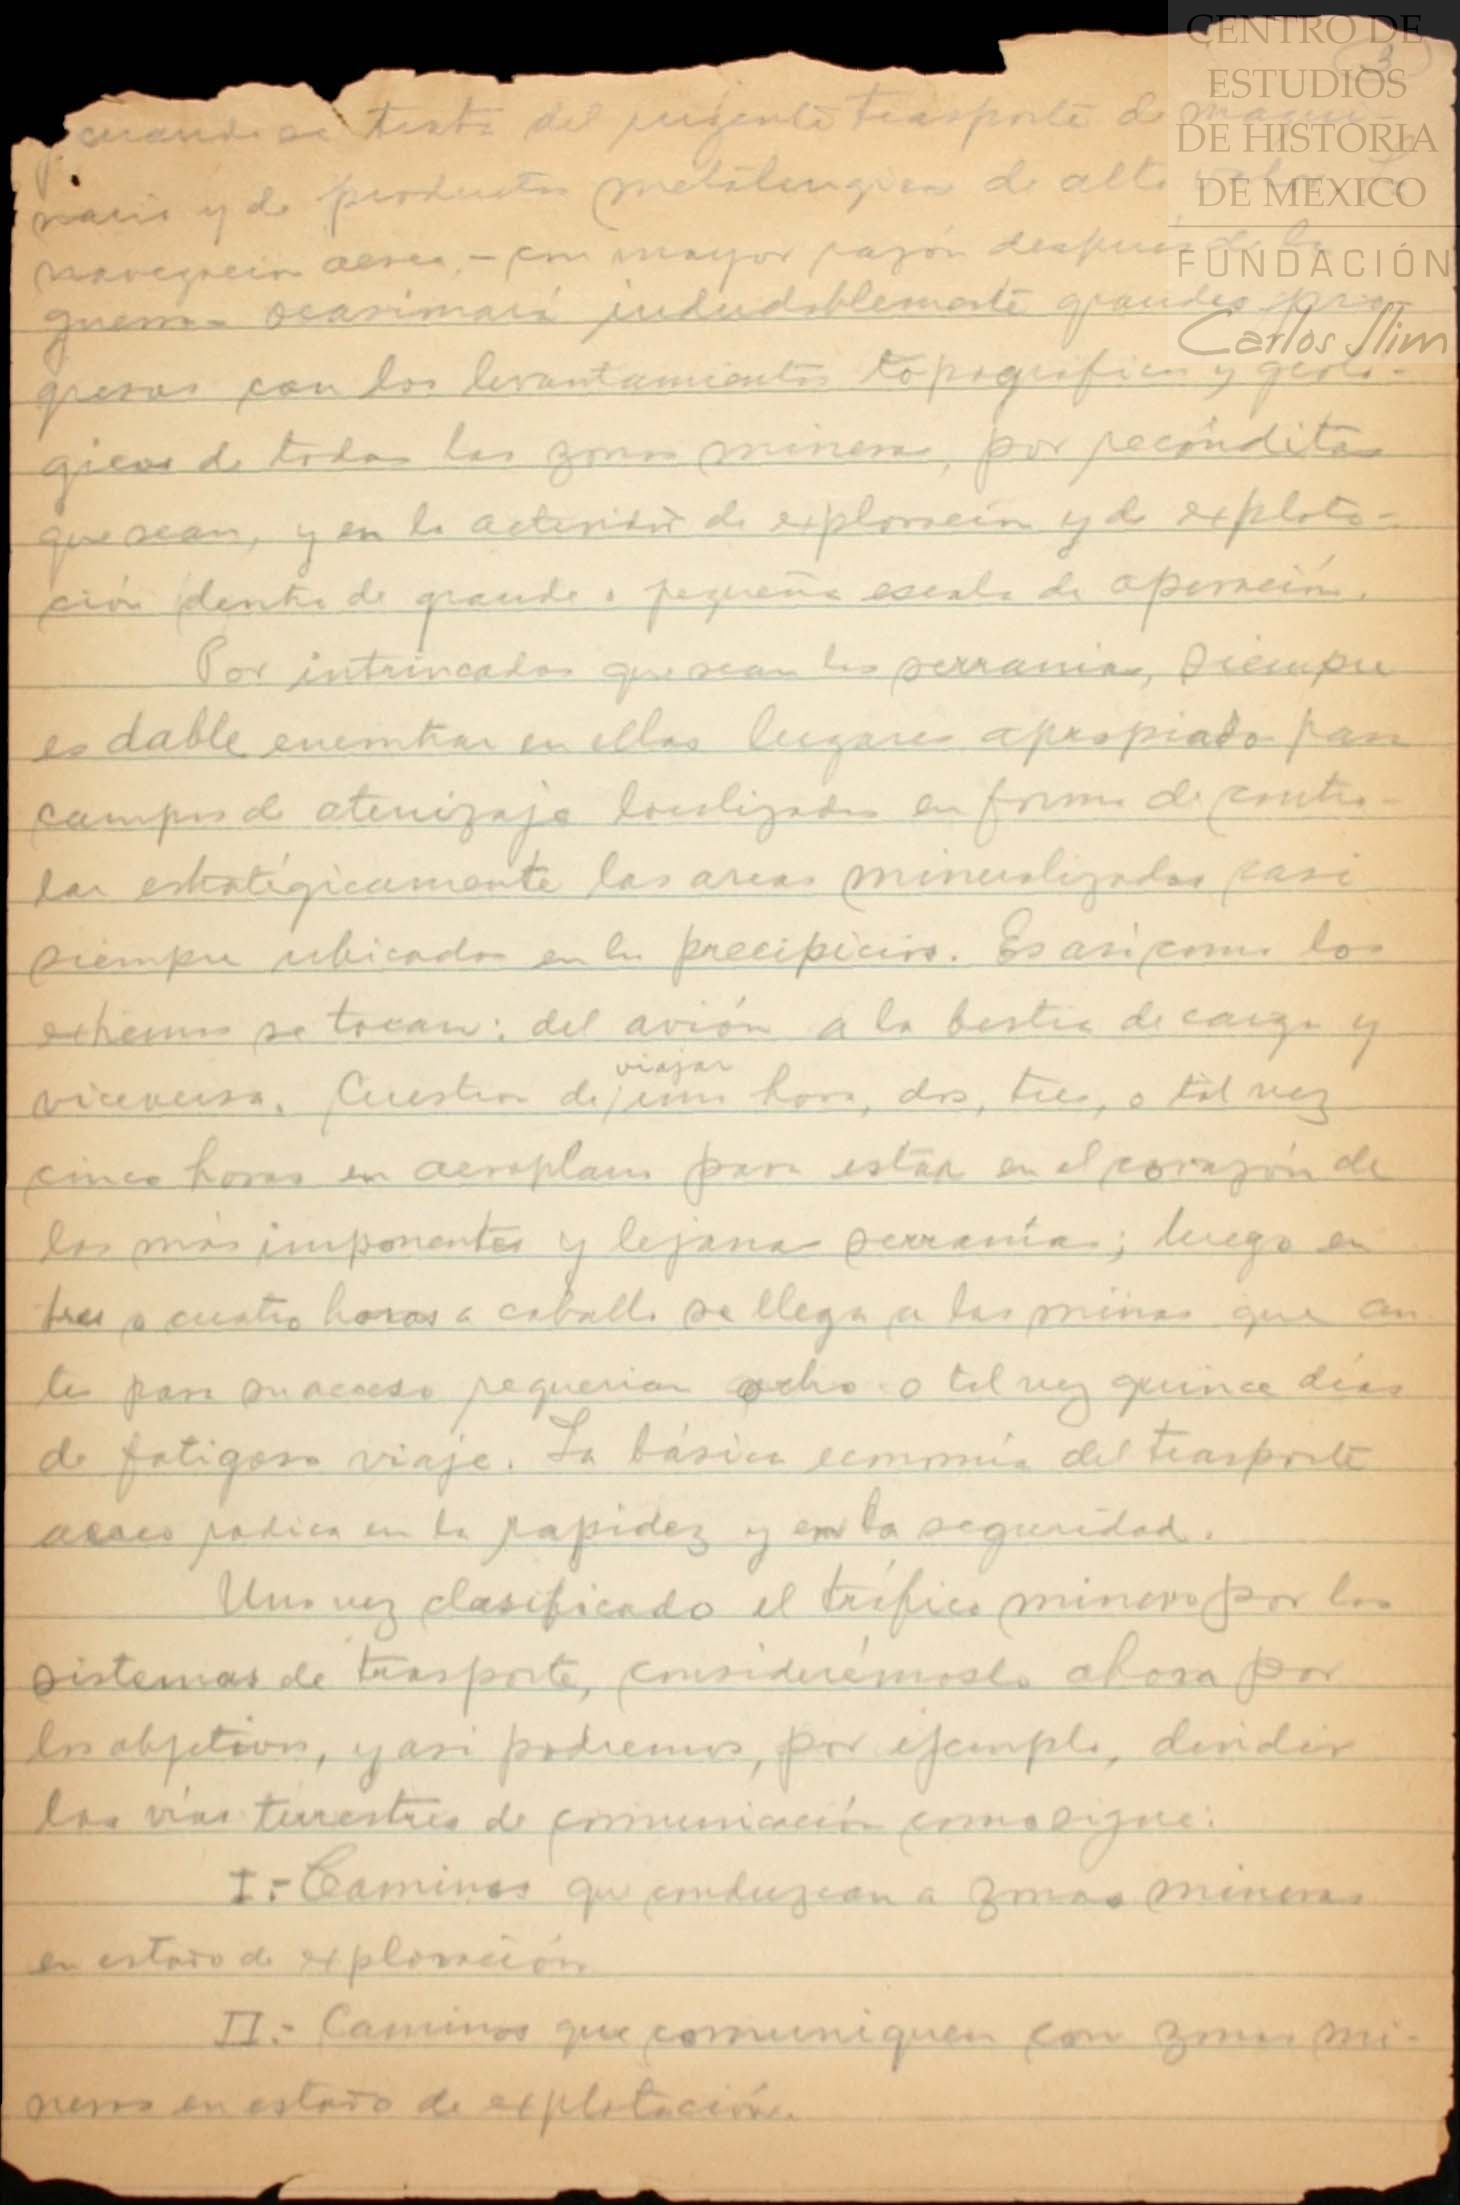 CENTRO DE
ESTUDIOS
DE HISTORIA
DE MEXICO
FUNDACIÓN
Carlos Slim
3
cuando se trata del urgente trasporte de maqui-
naria y de productos metalúrgicos de alto valor. La
navegación aerea, - con mayor razón después de la
guerra - ocasionará indudablemente grandes pro-
gresos con los levantamientos topograficos y geoló-
gicos de todas las zonas mineras, por recónditas
que sean, y en la actividad de exploración y de explota-
ción dentro de grande o pequeña escala de operación.
Por intrincadas que sean las serranias, siempre
es dable encontrar en ellas lugares apropiados para
campos de aterrizaje localizados en forma de contro-
lar estratégicamente las areas mineralizadas casi
siempre ubicadas en los precipicios. Es asi como los
extremos se tocan: del avión a la bestia de carga y
viceversa. Cuestion de viajar una hora, dos, tres, o tal vez
cinco horas en aeroplano para estar en el corazón de
las más imponentes y lejanas serranías; luego en
tres o cuatro horas a caballo se llega a las minas que an
tes para su acceso requerian ocho o tal vez quince días
de fatigoso viaje. La básica economía del trasporte
aereo radica en la rapidez y en la seguridad.
Una vez clasificado el tráfico minero por los
sistemas de trasporte, considerémoslo ahora por
los objetivos, y asi podremos, por ejemplo, dividir
las vías terrestres de comunicación como sigue:
I.- Caminos que conduzcan a zonas mineras
en estado de exploración
II.- Caminos que comuniquen con zonas mi-
neras en estado de explotación.